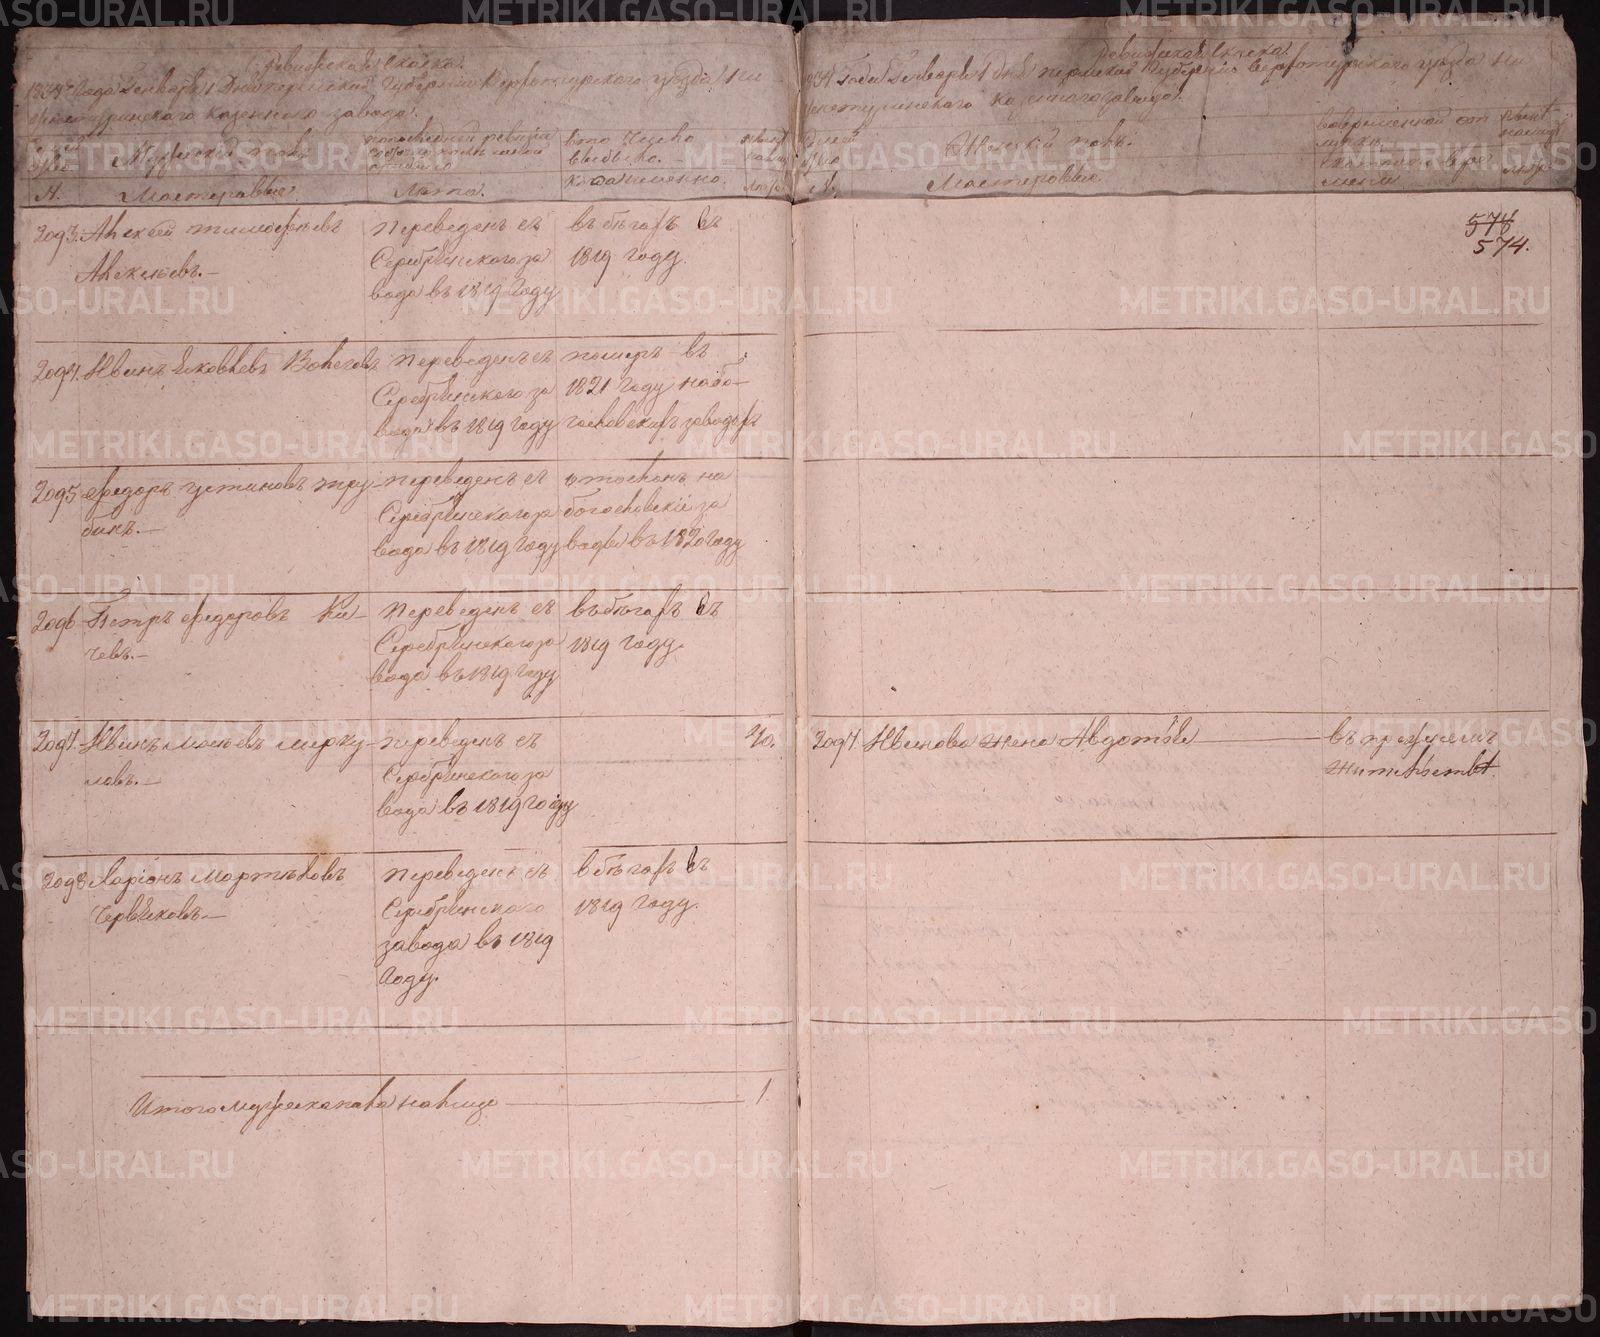 Ревижская Скаска.
1834 года Генваря 1 дня Пермской Губернии Верхотурскаго уезда Ни
жнетуринскаго казеннаго завода.
Мужеский полъ
По последней ревизіи
состояло
Изъ того числа
выбыло.
Нынѣ
на лицо
М.
Мастеровые
Лѣта.
Когда именно.
Лѣта
2093. Алексей тимофеевъ
Алексеевъ.—
Переведенъ съ
Серебрянскаго за
вода въ 1819 году
въ бѣгахъ съ
1819 году.
2094. Иванъ Яковлевъ Волеговъ
Переведенъ съ
Серебрянскаго за
вода въ 1819 году
померъ въ
1821 году на бо–
гословскихъ заводахъ
2095 Федоръ устиновъ тру–
бинъ.—
переведенъ съ
Серебрянскаго за
вода въ 1819 году
отосланъ на
богословскіе за
воды въ 1820 году
2096 Петръ Федоровъ Ки–
чевъ.—
Переведенъ съ
Серебрянскаго за
вода въ 1819 году
въ бѣгахъ съ
1819 году.
2097. Иванъ Мосеевъ мерку–
ловъ.—
переведенъ съ
Серебрянскаго за
вода въ 1819 году
40.
2098 Ларіонъ Мартыновъ
Червяковъ—
Переведенъ съ
Серебрянскаго
завода въ 1819
году.
въ бѣгахъ съ
1819 году.
Итого мужеска пола на лицо — 1.
Ревижская Скаска.
1834 года Генваря 1 дня Пермской Губерніи Верхотурскаго уезда Ни
жнетуринскаго казеннаго завода.
Женский полъ.
Во временной от
лучке.
Мастеровые.
Нынѣ
на лицо
Лѣта
574
574.
2097. Иванова жена Авдотья —
въ прежнемъ
жительствѣ.
METRIKI.GASO-URAL.RU